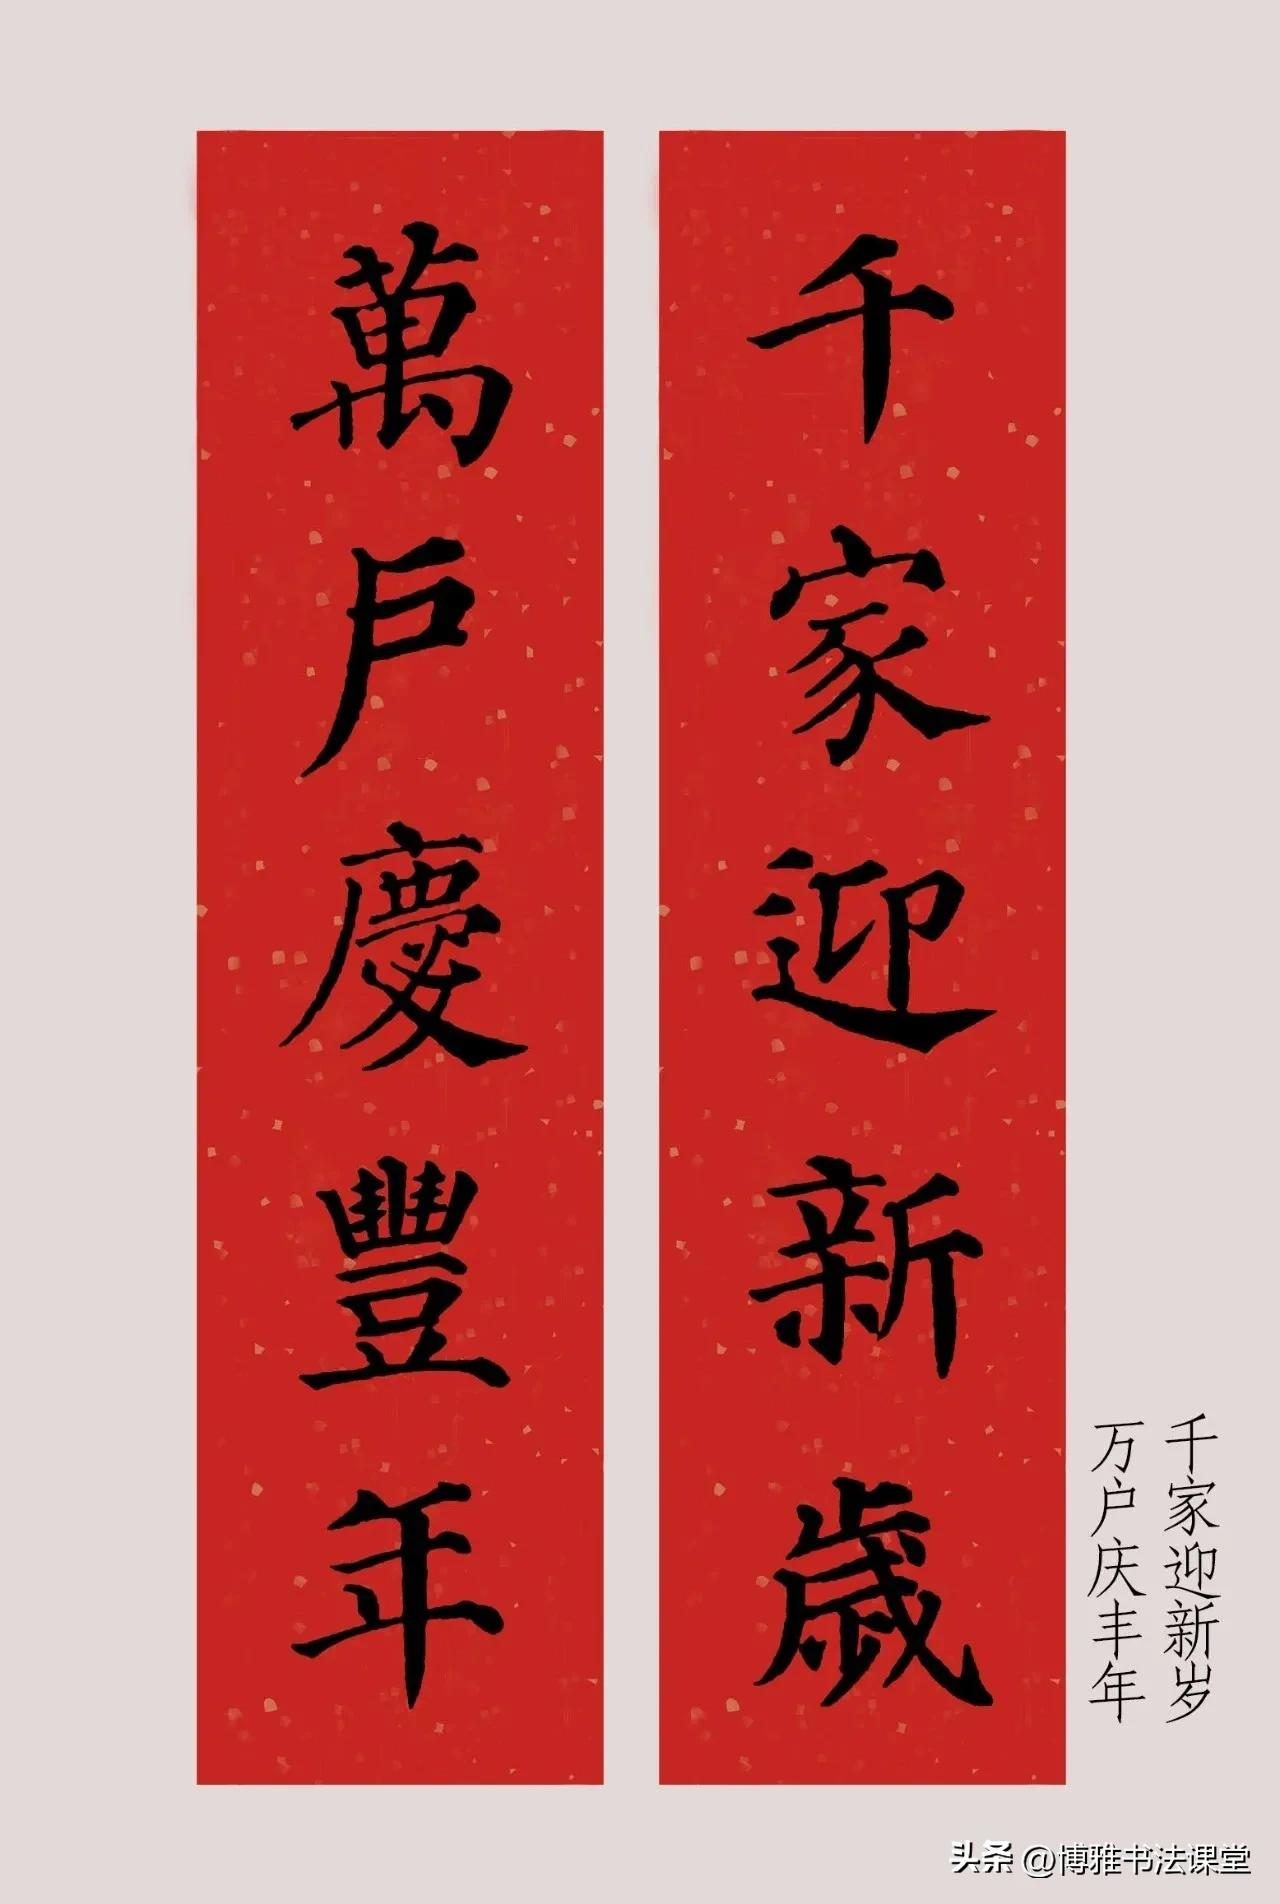 千家迎新歲
萬戶慶豐年
千家迎新岁
万户庆丰年
头条 @博雅书法课堂